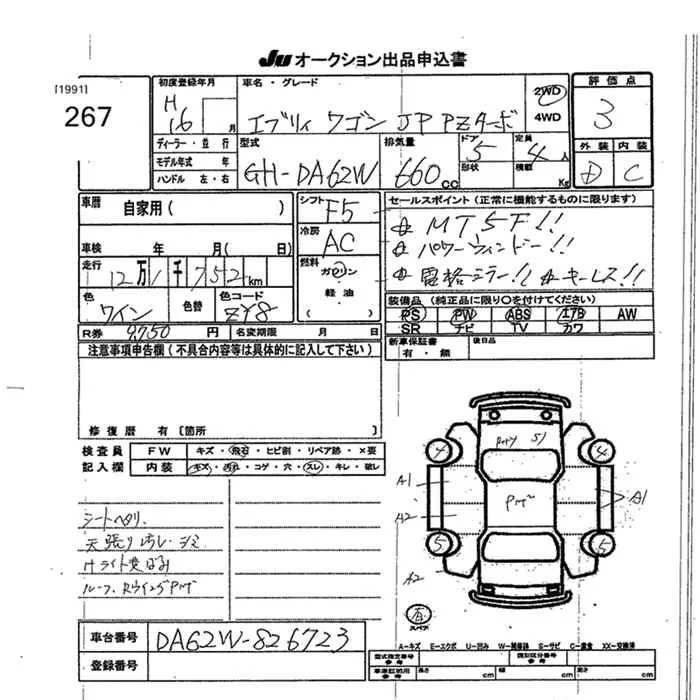 JU オークション出品申込書
[1991]
267
初度登録年月
H16 月
車名・グレード
エブリィ ワゴン JP PZターボ
2WD
4WD
評価点
3
外装 内装
D C
ディーラー・並行
モデル年式 年
ハンドル 左・右
型式
GH-DA62W
排気量
660cc
ドア
5
形状
定員
4人
積載
Kg
車歴
自家用( )
車検 年 月(日)
走行
12万1千752km
色
ワイン
色替
色コード
ZY8
シフト
F5
冷房
AC
燃料
ガソリン
軽油
セールスポイント(正常に機能するものに限ります)
MT5F!!
パワーウィンドー!!
電格ミラー!! キーレス!!
装備品(純正品に限り○を付けてください)
PS PW ABS エアB AW
SR ナビ TV カワ
R券 9,750 円 名変期限 月 日
新車保証書
有・無
後日品
注意事項申告欄(不具合内容等は具体的に記入して下さい)
修復歴 有〔箇所 〕
検査員
記入欄
FW キズ・飛石・ヒビ割・リペア跡・×要
内装 キズ・汚れ・コゲ・穴・スレ・キレ・破レ
シートヘタリ.
天張り汚レ・シミ
Hライト黄ばみ
ルーフ.RウイングPハゲ
S1
4 4
A1 A1
Pハゲ
A2
5 5
A2
スペア
車台番号 DA62W-826723
登録番号
A-キズ E-エクボ U-凹み W-補修跡 S-サビ C-腐食 XX-交換済
型式指定番号
参考
類別区分番号
参考
車庫証明用
参考
長さ cm 幅 cm 高さ cm